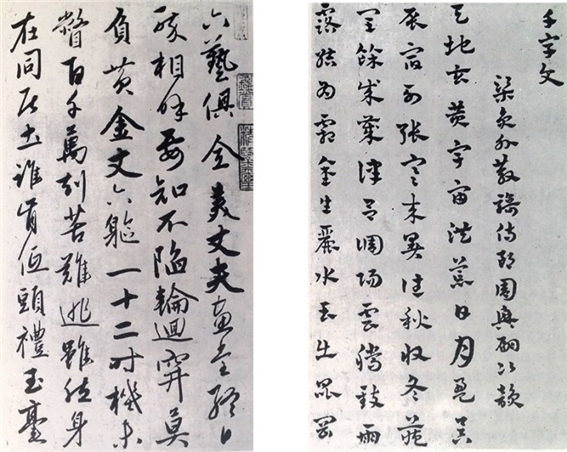 千字文
梁員外散騎侍郎周興嗣次韻
天地玄黃宇宙洪荒日月盈昃
辰宿列張寒来暑往秋收冬藏
閏餘成歲律呂調陽雲騰致雨
露結為霜金生麗水玉出崑岡
六藝俱全美丈夫終日
相要知不陷輪迴穽莫
負黄金丈六軀一十二時機未
瞥百千萬劫苦難逃雖然身
在同居土誰肯低頭禮玉毫